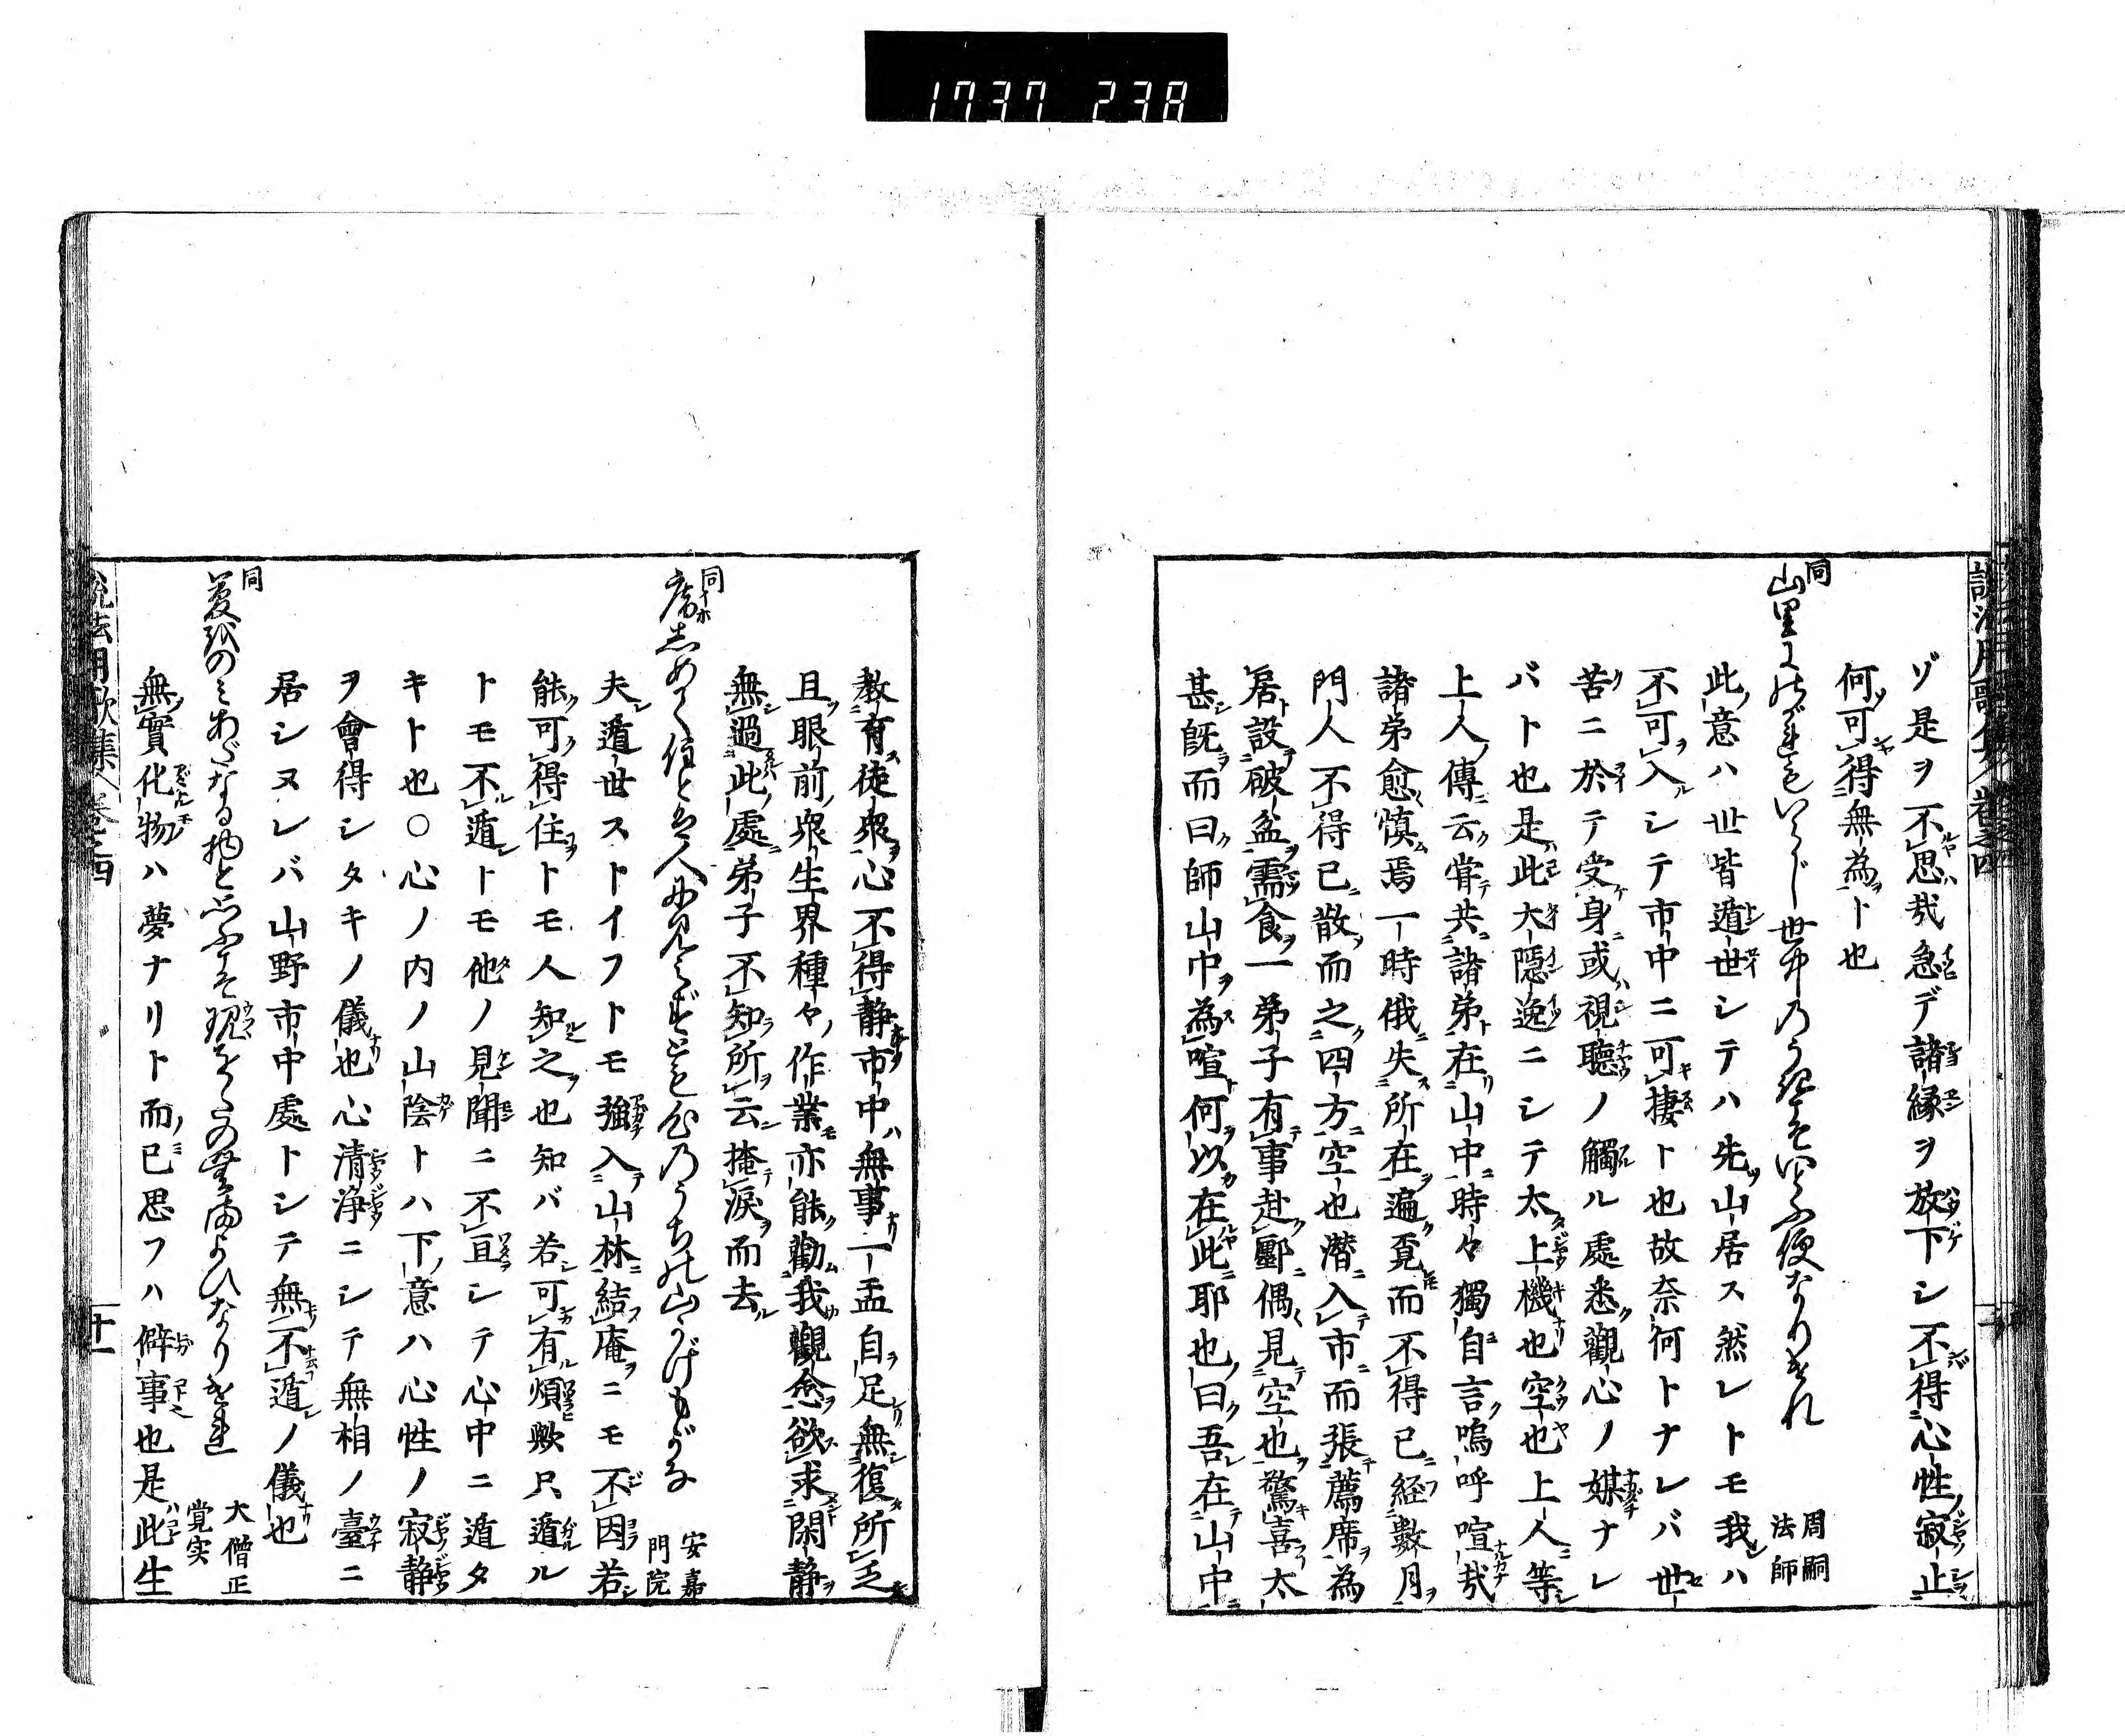 1737 238
ゾ是ヲ不思哉急デ諸縁ヲ放下シ不得心性寂止
何可得無為ト也
同
山里にのがれてもいらじ世中のうきをもいとふ便なりけれ
周嗣法師
此意ハ世皆遁世シテハ先山居ス然レトモ我ハ
不可入シテ市中ニ可捿ト也故奈何トナレバ世
苦ニ於テ受身或視聴ノ觸ル處悉觀心ノ媒ナレ
バト也是此大隠逸ニシテ太上機也空也上人等
上人傳云甞共諸弟在山中時々獨自言嗚呼喧哉
諸弟愈慎焉一時俄失所在遍覓而不得已経數月
門人不得已散而之四方空也潜入市而張薦席為
居設破盆需食一弟子有事赴郾偶見空也驚喜太
甚既而曰師山中為喧何以在此耶也曰吾在山中
教育徒衆心不得静市中無事一盂自足無復所乏
且眼前衆生界種々作業亦能勸我觀念欲求閑静
無過此處弟子不知所云掩涙而去
同
席しめて住とは人に見えずとも心のうちの山かげもがな
安嘉門院
夫遁世ストイフトモ強入山林結庵ニモ不因若
能可得住トモ人知之也知バ若可有煩歟只遁ル
トモ不遁トモ他ノ見聞ニ不亘シテ心中ニ遁タ
キト也○心ノ内ノ山陰トハ下意ハ心性ノ寂静
ヲ會得シタキノ儀也心清浄ニシテ無相ノ臺ニ
居シヌレバ山野市中處トシテ無不遁ノ儀也
同
夢をのみあだなる物と思ふこそ現をしらぬまよひなりけれ
大僧正覚実
無實化物ハ夢ナリト而已思フハ僻事也是此生
説法用歌集 巻之四
十一